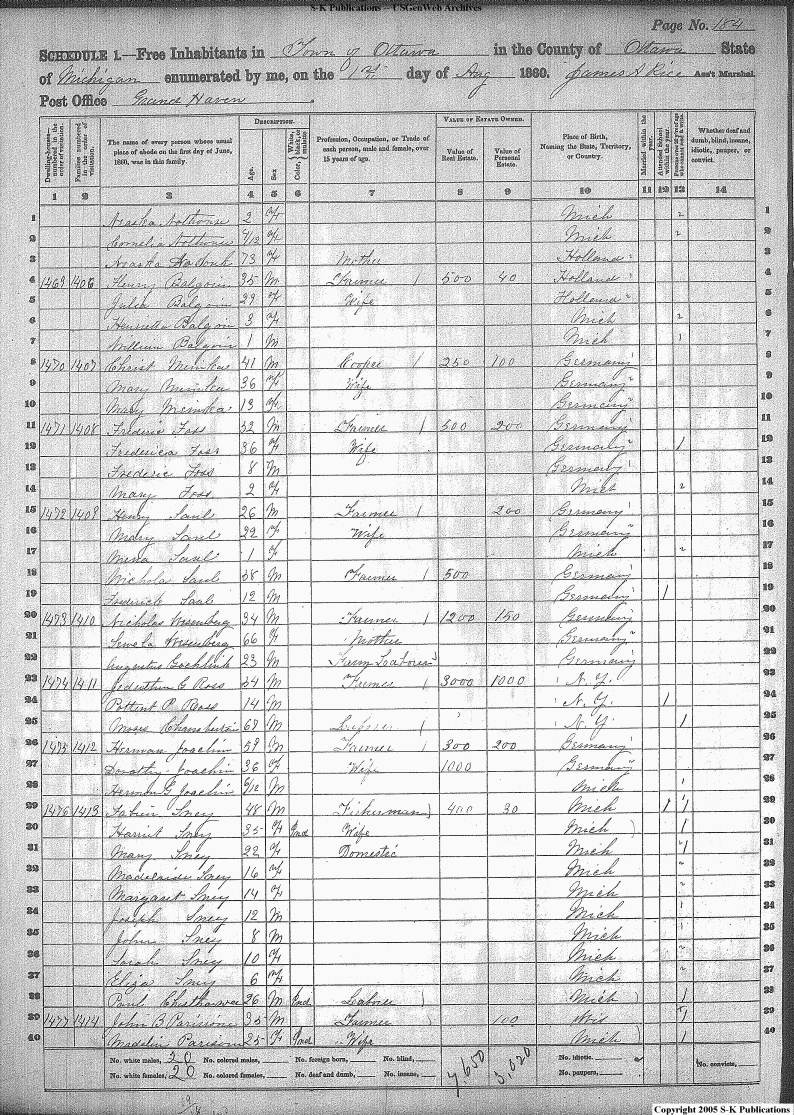 S-K Publications – USGenWeb Archives
Page No. 184
SCHEDULE 1.—Free Inhabitants in Town of Ottawa in the County of Ottawa State
of Michigan enumerated by me, on the 1st day of Aug 1860. James A Rice Ass't Marshal
Post Office Grand Haven
Dwelling-houses—numbered in the order of visitation. Families numbered in the order of visitation. The name of every person whose usual place of abode on the first day of June, 1860, was in this family. DESCRIPTION. Age. Sex. Color, White, black, or mulatto. Profession, Occupation, or Trade of each person, male and female, over 15 years of age. VALUE OF ESTATE OWNED. Value of Real Estate. Value of Personal Estate. Place of Birth, Naming the State, Territory, or Country. Married within the year. Attended School within the year. Persons over 20 y'rs of age who cannot read & write. Whether deaf and dumb, blind, insane, idiotic, pauper, or convict.
1 2 3 4 5 6 7 8 9 10 11 12 13 14
1 2 F Mich 1
2 Cornelia 9/12 F Mich 2
3 73 F Mother Holland 3
4 1469 1406 Henry Balgoin 35 M Farmer 1 500 40 Holland 4
5 Julia Balgoin 29 F Wife Holland 5
6 Henrietta Balgoin 3 F Mich 6
7 William Balgoin 1 M Mich 7
8 1470 1407 Christ Meinka 41 M Cooper 1 250 100 Germany 8
9 Mary Meinka 36 F Wife Germany 9
10 Mary Meinka 13 F Germany 10
11 1471 1408 Frederic Foss 32 M Farmer 1 500 200 Germany 11
12 Frederica Foss 36 F Wife Germany 1 12
13 Frederic Foss 8 M Germany 13
14 Mary Foss 2 F Mich 14
15 1472 1409 Henry Saul 26 M Farmer 1 200 Germany 15
16 Mary Saul 22 F Wife Germany 16
17 Mena Saul 1 F Mich 17
18 Nichola Saul 38 M Farmer 1 500 Germany 18
19 Frederick Saul 12 M Germany 1 19
20 1473 1410 Nicholas Wesenberg 34 M Farmer 1 1200 150 Germany 20
21 Wesenberg 66 F Mother Germany 21
22 Augustus 23 M Farm Laborer Germany 22
23 1474 1411 G Ross 34 M Farmer 1 3000 1000 N.Y. 23
24 P Ross 14 M N.Y. 1 24
25 Moses Chamberlin 69 M N.Y. 1 25
26 1475 1412 Herman Joachin 59 M Farmer 1 300 200 Germany 26
27 Dorothy Joachin 36 F Wife 1000 Germany 27
28 Herman G Joachin 6/12 M Mich 28
29 1476 1413 Fabian Sney 48 M Fisherman 400 30 Mich 1 1 29
30 Harriet Sney 35 F Ind Wife Mich 1 30
31 Mary Sney 22 F Domestic Mich 1 31
32 Madelaide Sney 16 F Mich 32
33 Margaret Sney 14 F Mich 33
34 Joseph Sney 12 M Mich 34
35 John Sney 8 M Mich 35
36 Sarah Sney 10 F Mich 36
37 Eliza Sney 6 F Mich 37
38 Paul 26 M Ind Laborer Mich 1 38
39 1477 1414 John B Parisone 35 M Farmer 100 Wis 39
40 Madelin Parison 25 F Ind Wife Mich 1 40
No. white males, 20 No. colored males, No. foreign born, No. blind, 7,650 3,020 No. idiotic. No. convicts,
No. white females, 20 No. colored females, No. deaf and dumb, No. insane, No. paupers,
Copyright 2005 S-K Publications